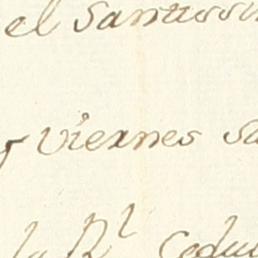 el Santissi
y Viernes Sa
la Rl Cedu